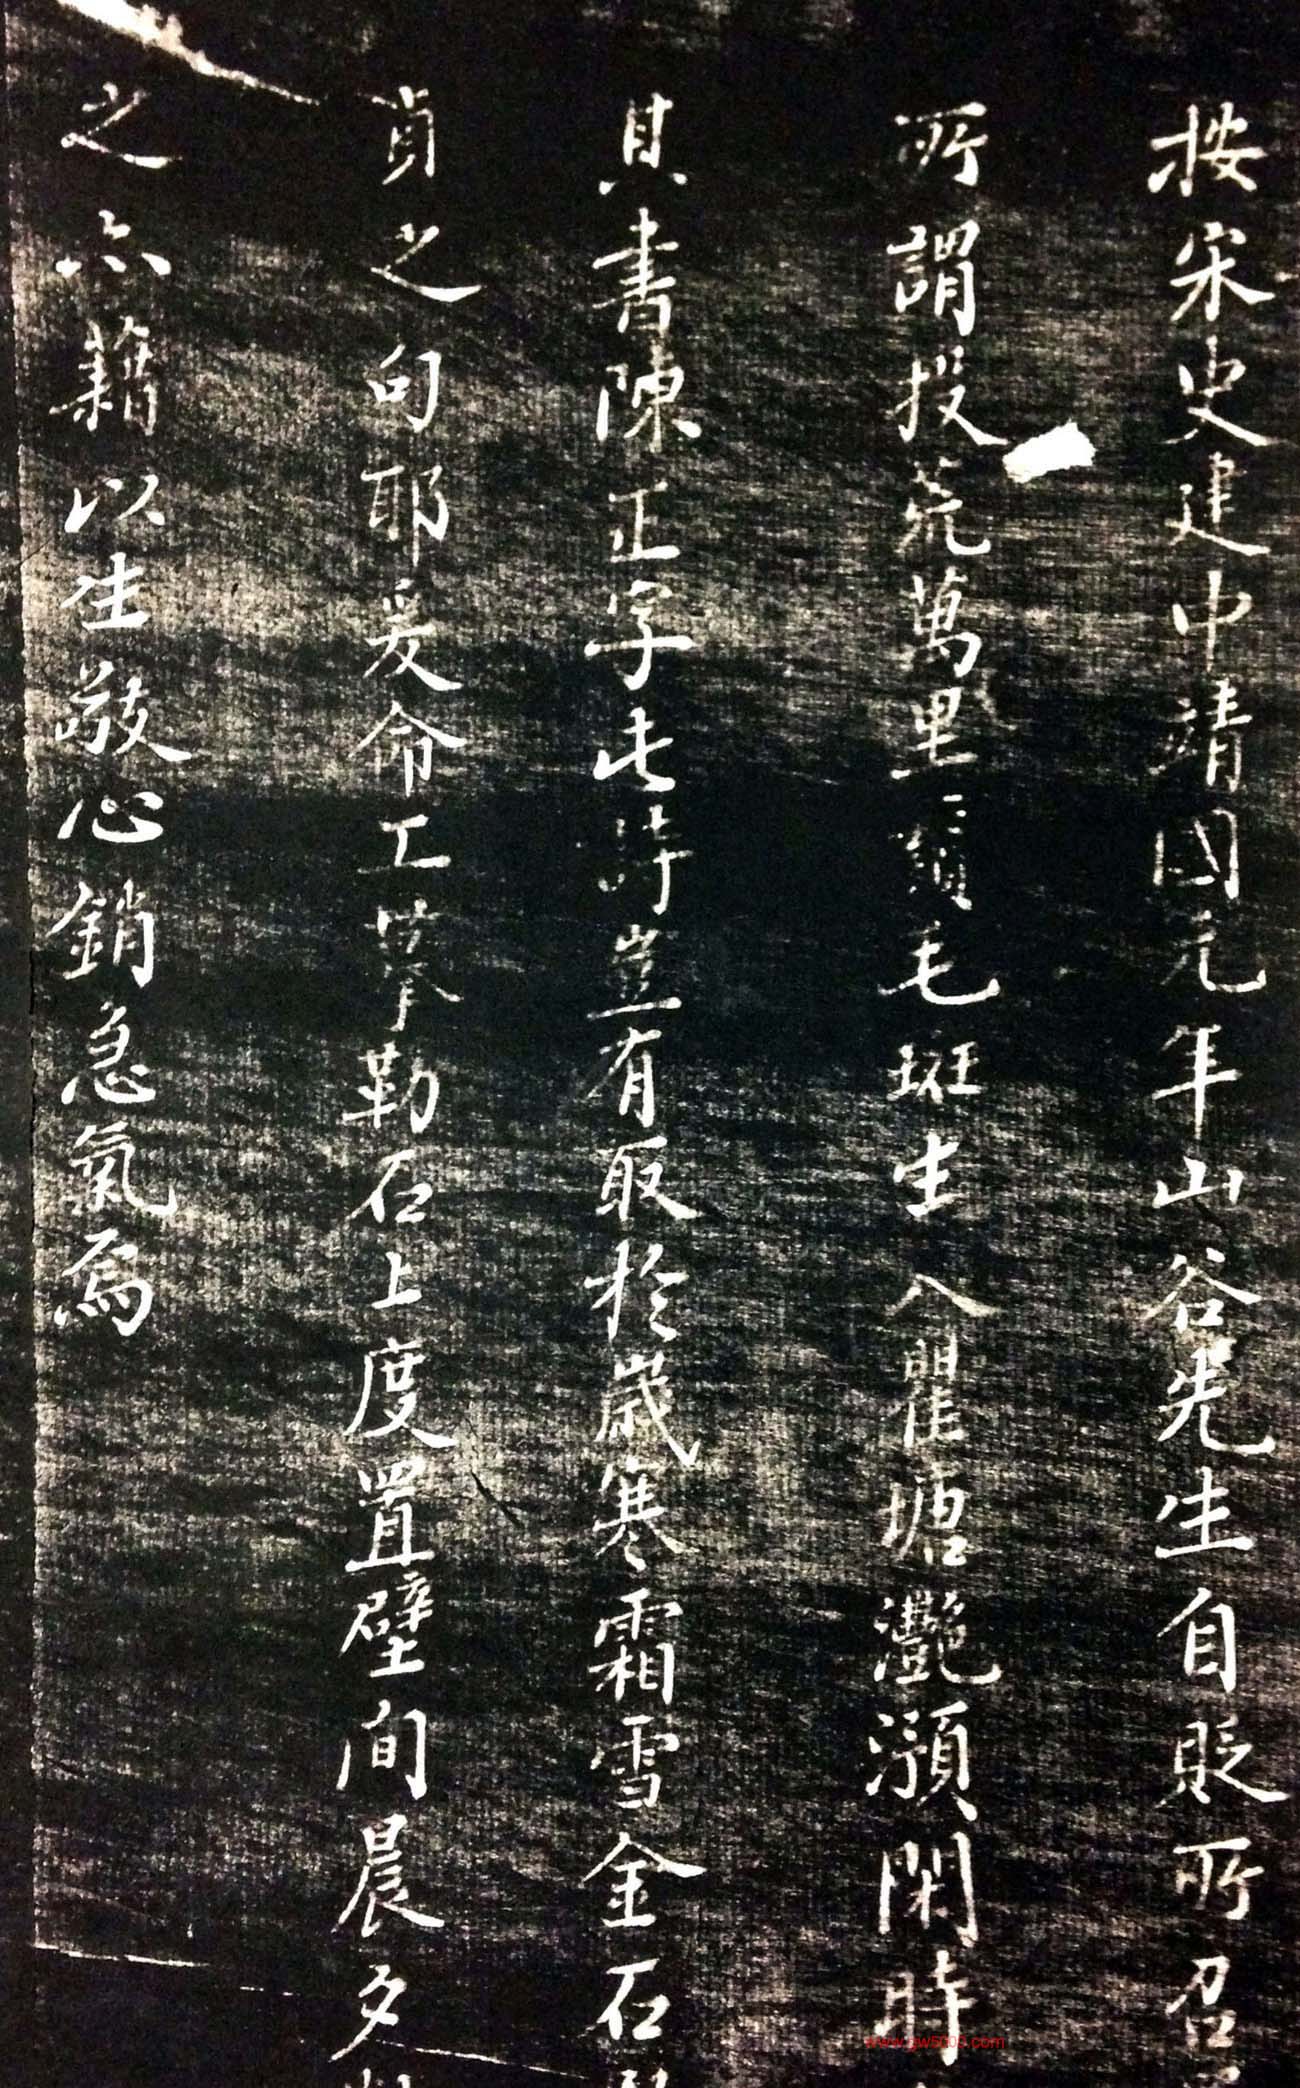 按宋史建中靖國元年山谷先生自貶所召
所謂投荒萬里鬢毛斑生入瞿塘灩澦關時
其書陳正字此詩豈有取於歲寒霜雪金石
貞之句耶爰命工摹勒石上度置壁間晨夕
之亦藉以生敬心銷怠氣焉
www.gw5000.com